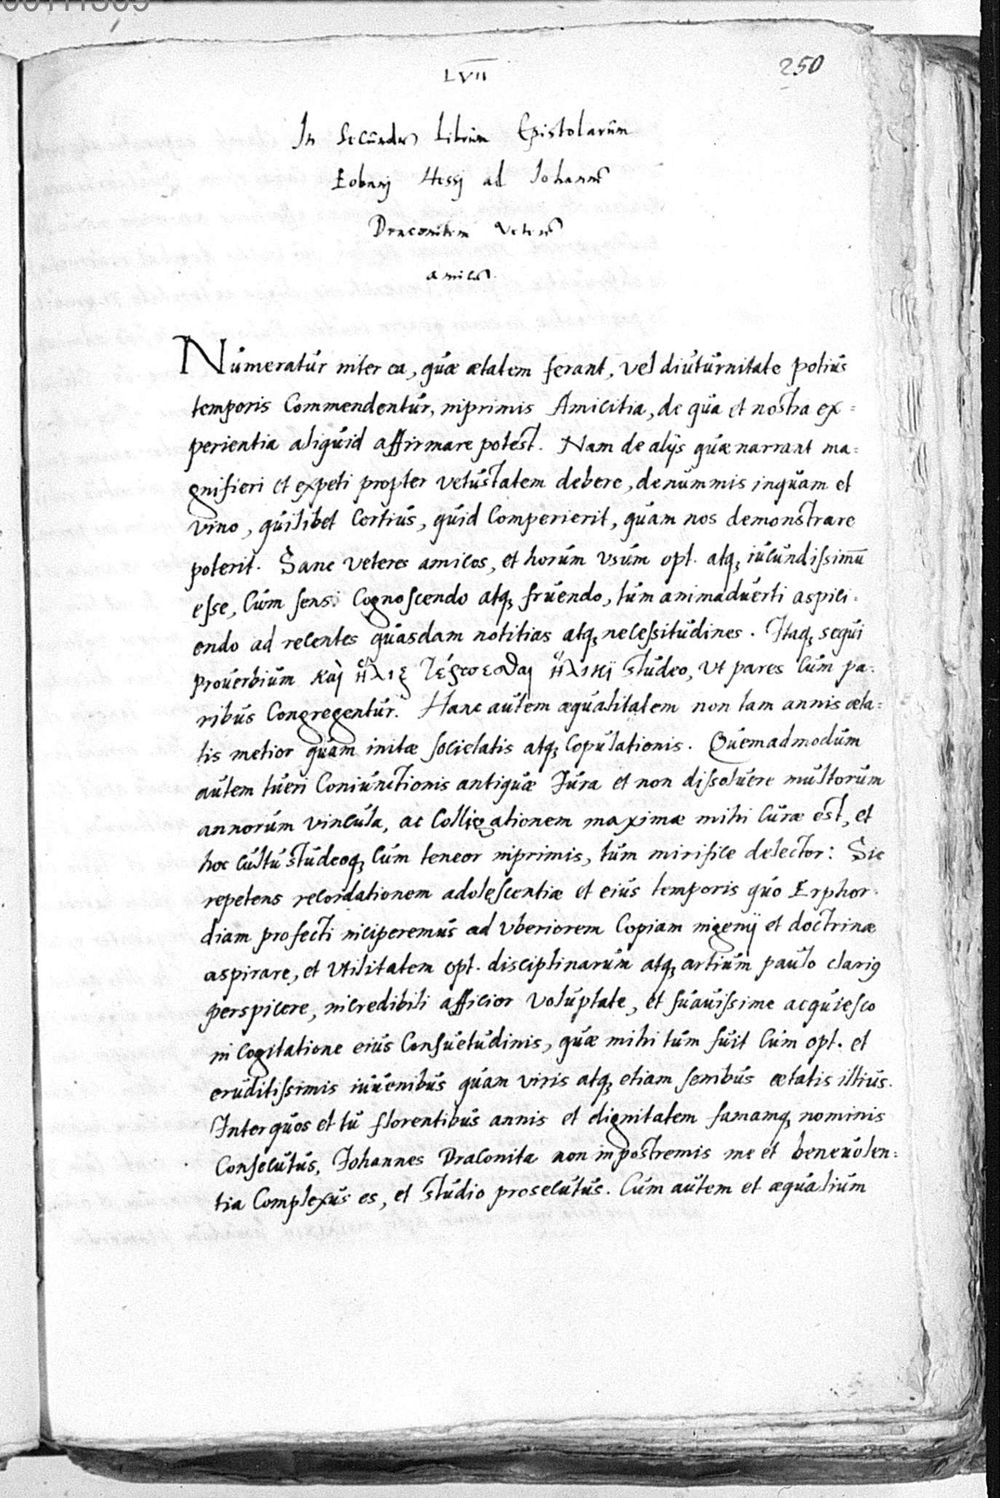 LVII
250
In Secundū Librum Epistolarum
Eobani Hessi ad Iohannē
Draconitem veterē
amicū.
Numeratur inter ea, quæ ætatem ferant, vel diuturnitate potius
temporis Commendentur, inprimis Amicitia, de qua et nostra ex=
perientia aliquid affirmare potest. Nam de alijs quæ narrant ma=
gnifieri et expeti propter vetustatem debere, de nummis inquam et
vino, quilibet Certius, quid Compererit, quam nos demonstrare
poterit. Sane veteres amicos, et horum vsum opt. atq; iucundissimū
esse, Cum sensi Cognoscendo atq; fruendo, tum animaduerti aspici=
endo ad recentes quasdam notitias atq; necessitudines. Itaq; sequi
Prouerbium καὶ ἧλιξ τέρπεσθαι ἥλικι studeo, vt pares Cum pa=
ribus Congregentur. Hanc autem æqualitatem non tam annis æta=
tis metior quam initæ societatis atq; Copulationis. Quemadmodum
autem tueri Coniunctionis antiquæ Iura et non dissoluere multorum
annorum vincula, ac Colligationem maximæ mihi Curæ est, et
hoc Cultu studeoq; Cum teneor inprimis, tum mirifice delector: Sic
repetens recordationem adolescentiæ et eius temporis quo Erphor=
diam profecti inciperemus ad vberiorem Copiam ingenij et doctrinæ
aspirare, et vtilitatem opt. disciplinarum atq; artium paulo clarius
perspicere, incredibili afficior voluptate, et suauissime acquiesco
in Cogitatione eius Consuetudinis, quæ mihi tum fuit Cum opt. et
eruditissimis iuuenibus quam viris atq; etiam senibus ætatis illius.
Inter quos et tu florentibus annis et dignitatem famamq; nominis
Consecutus, Iohannes Draconita non in postremis me et beneuolen=
tia Complexus es, et studio prosecutus. Cum autem et æqualium